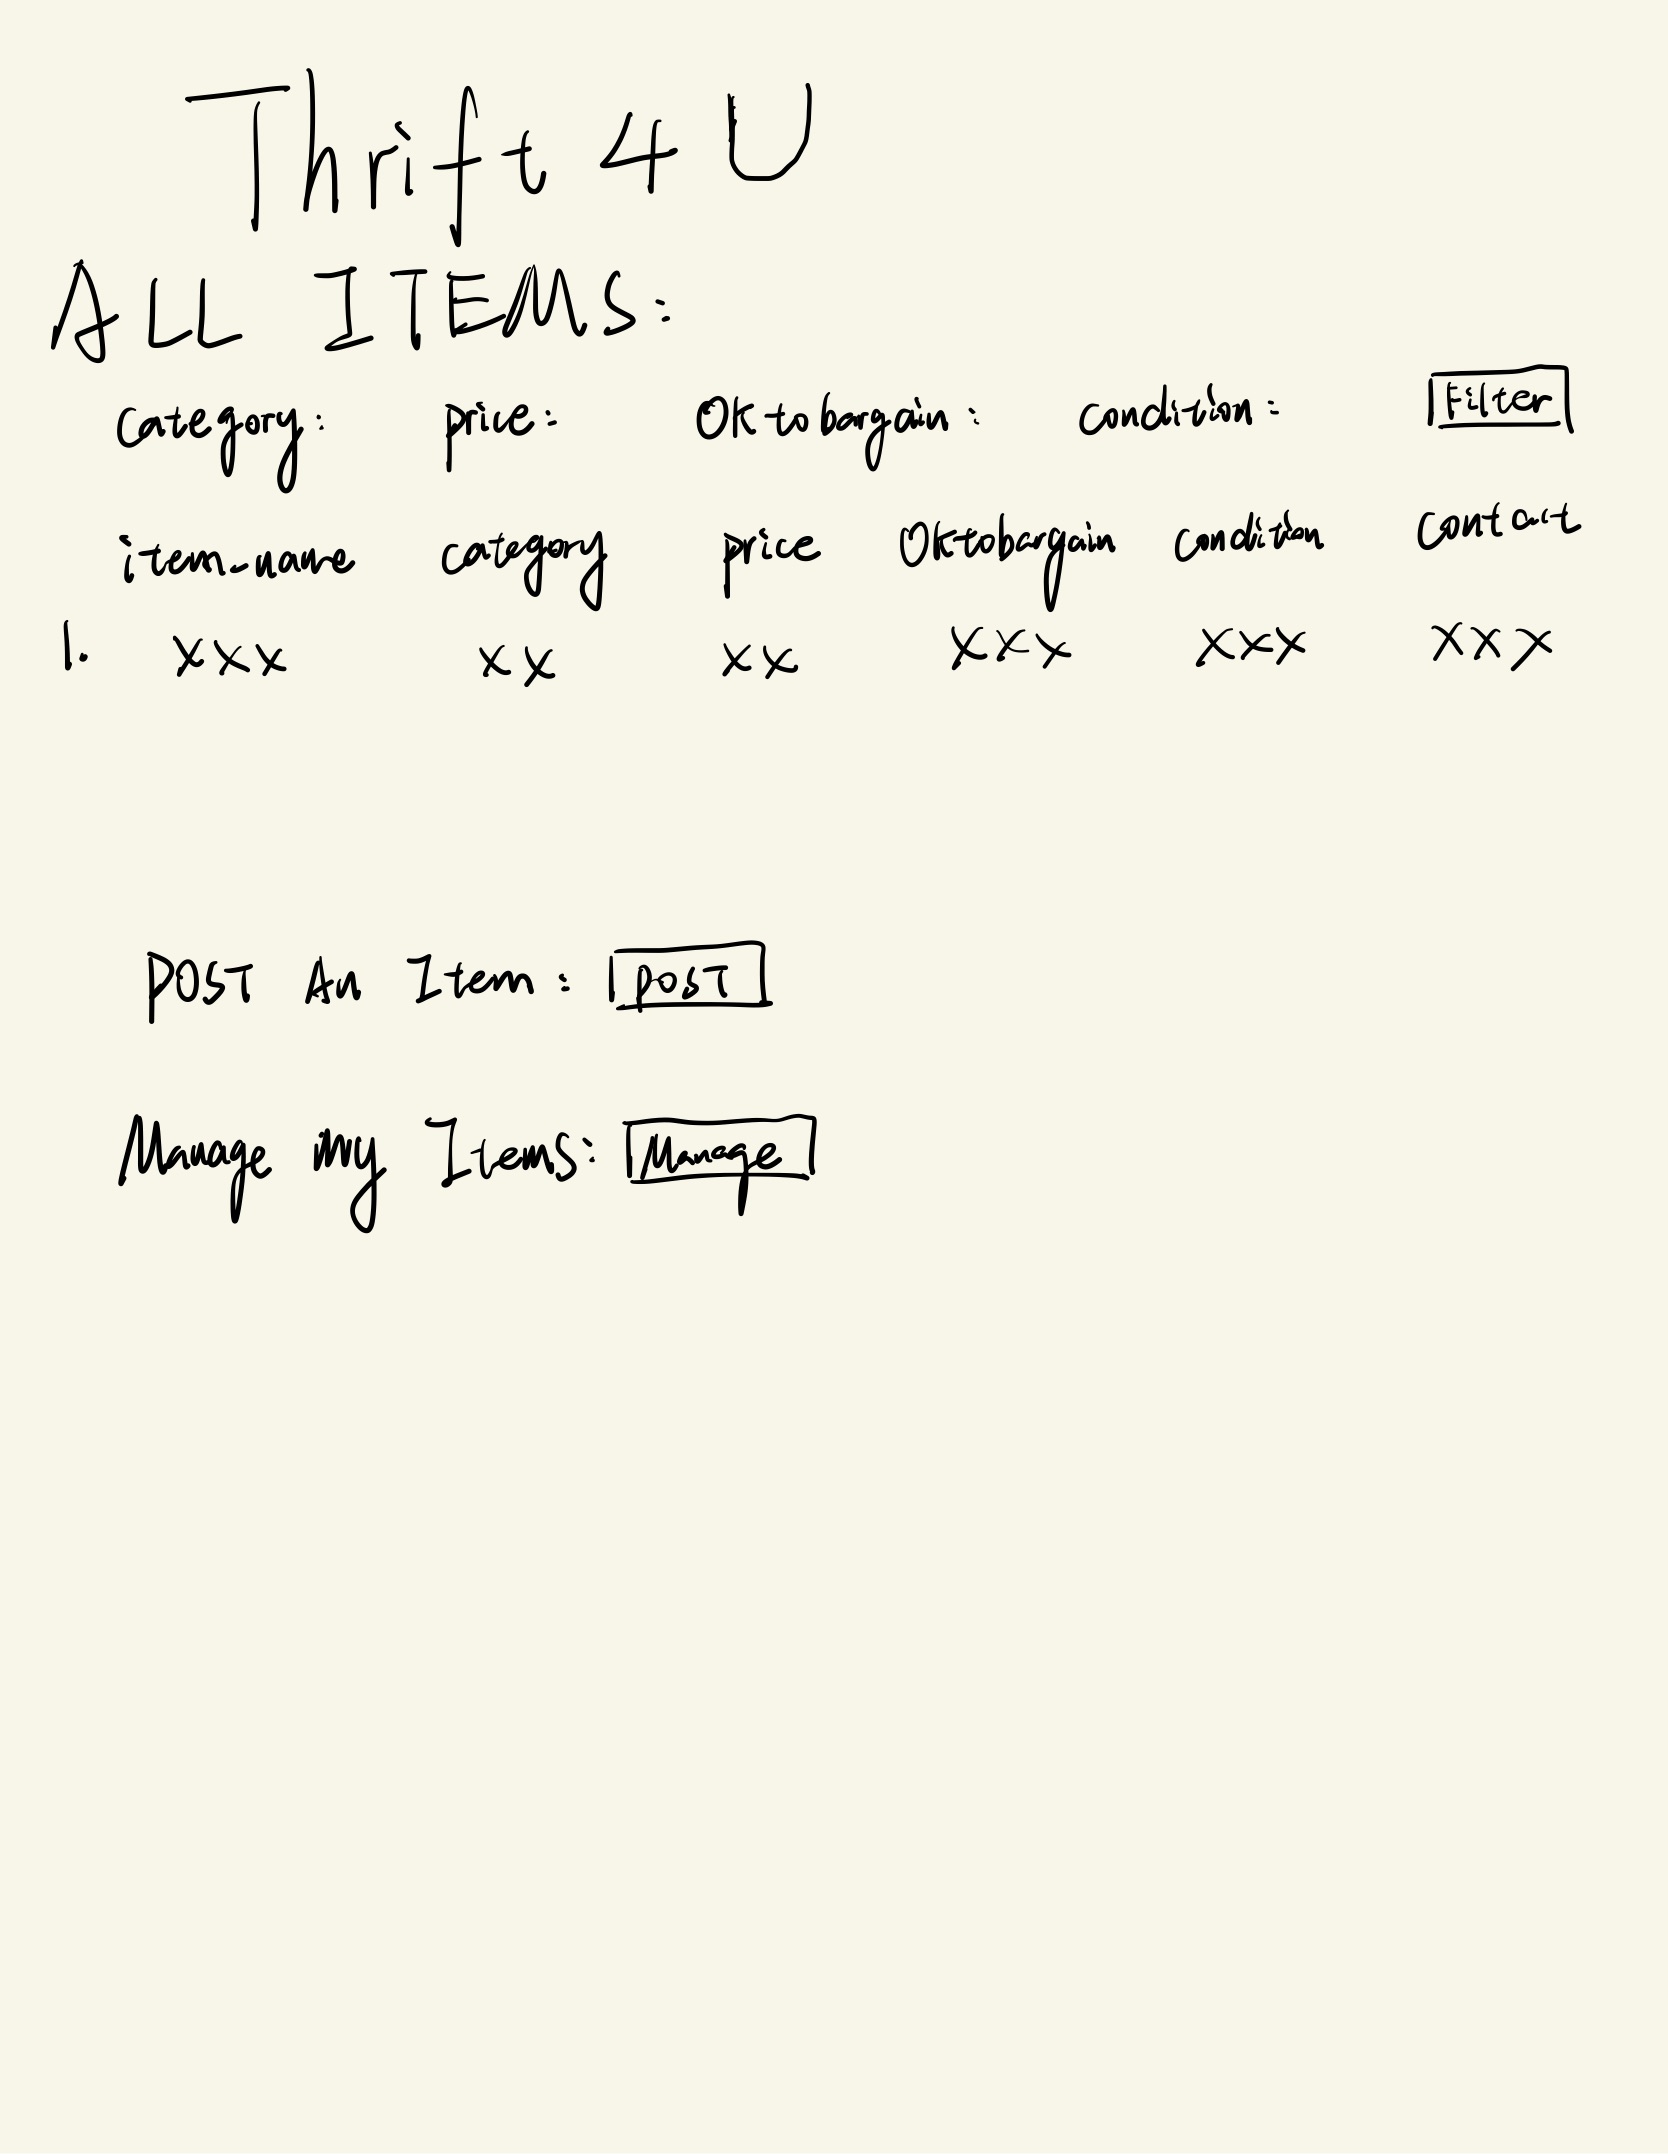 Thrift 4 U
ALL ITEMS:
Category: price: OK to bargain: condition: Filter
item_name category price OK to bargain condition contact
1. xxx xx xx xxx xxx xxx
POST An Item: POST
Manage My Items: Manage